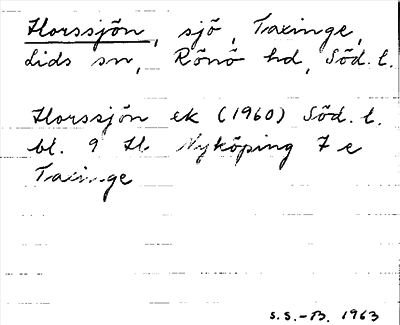 Horssjön, sjö, Taxinge,
Lids sn, Rönö hd, Söd. l.
Horssjön ek (1960) Söd. l.
bl. 9 H Nyköping 7 e
Taxinge
S.S.-B. 1963